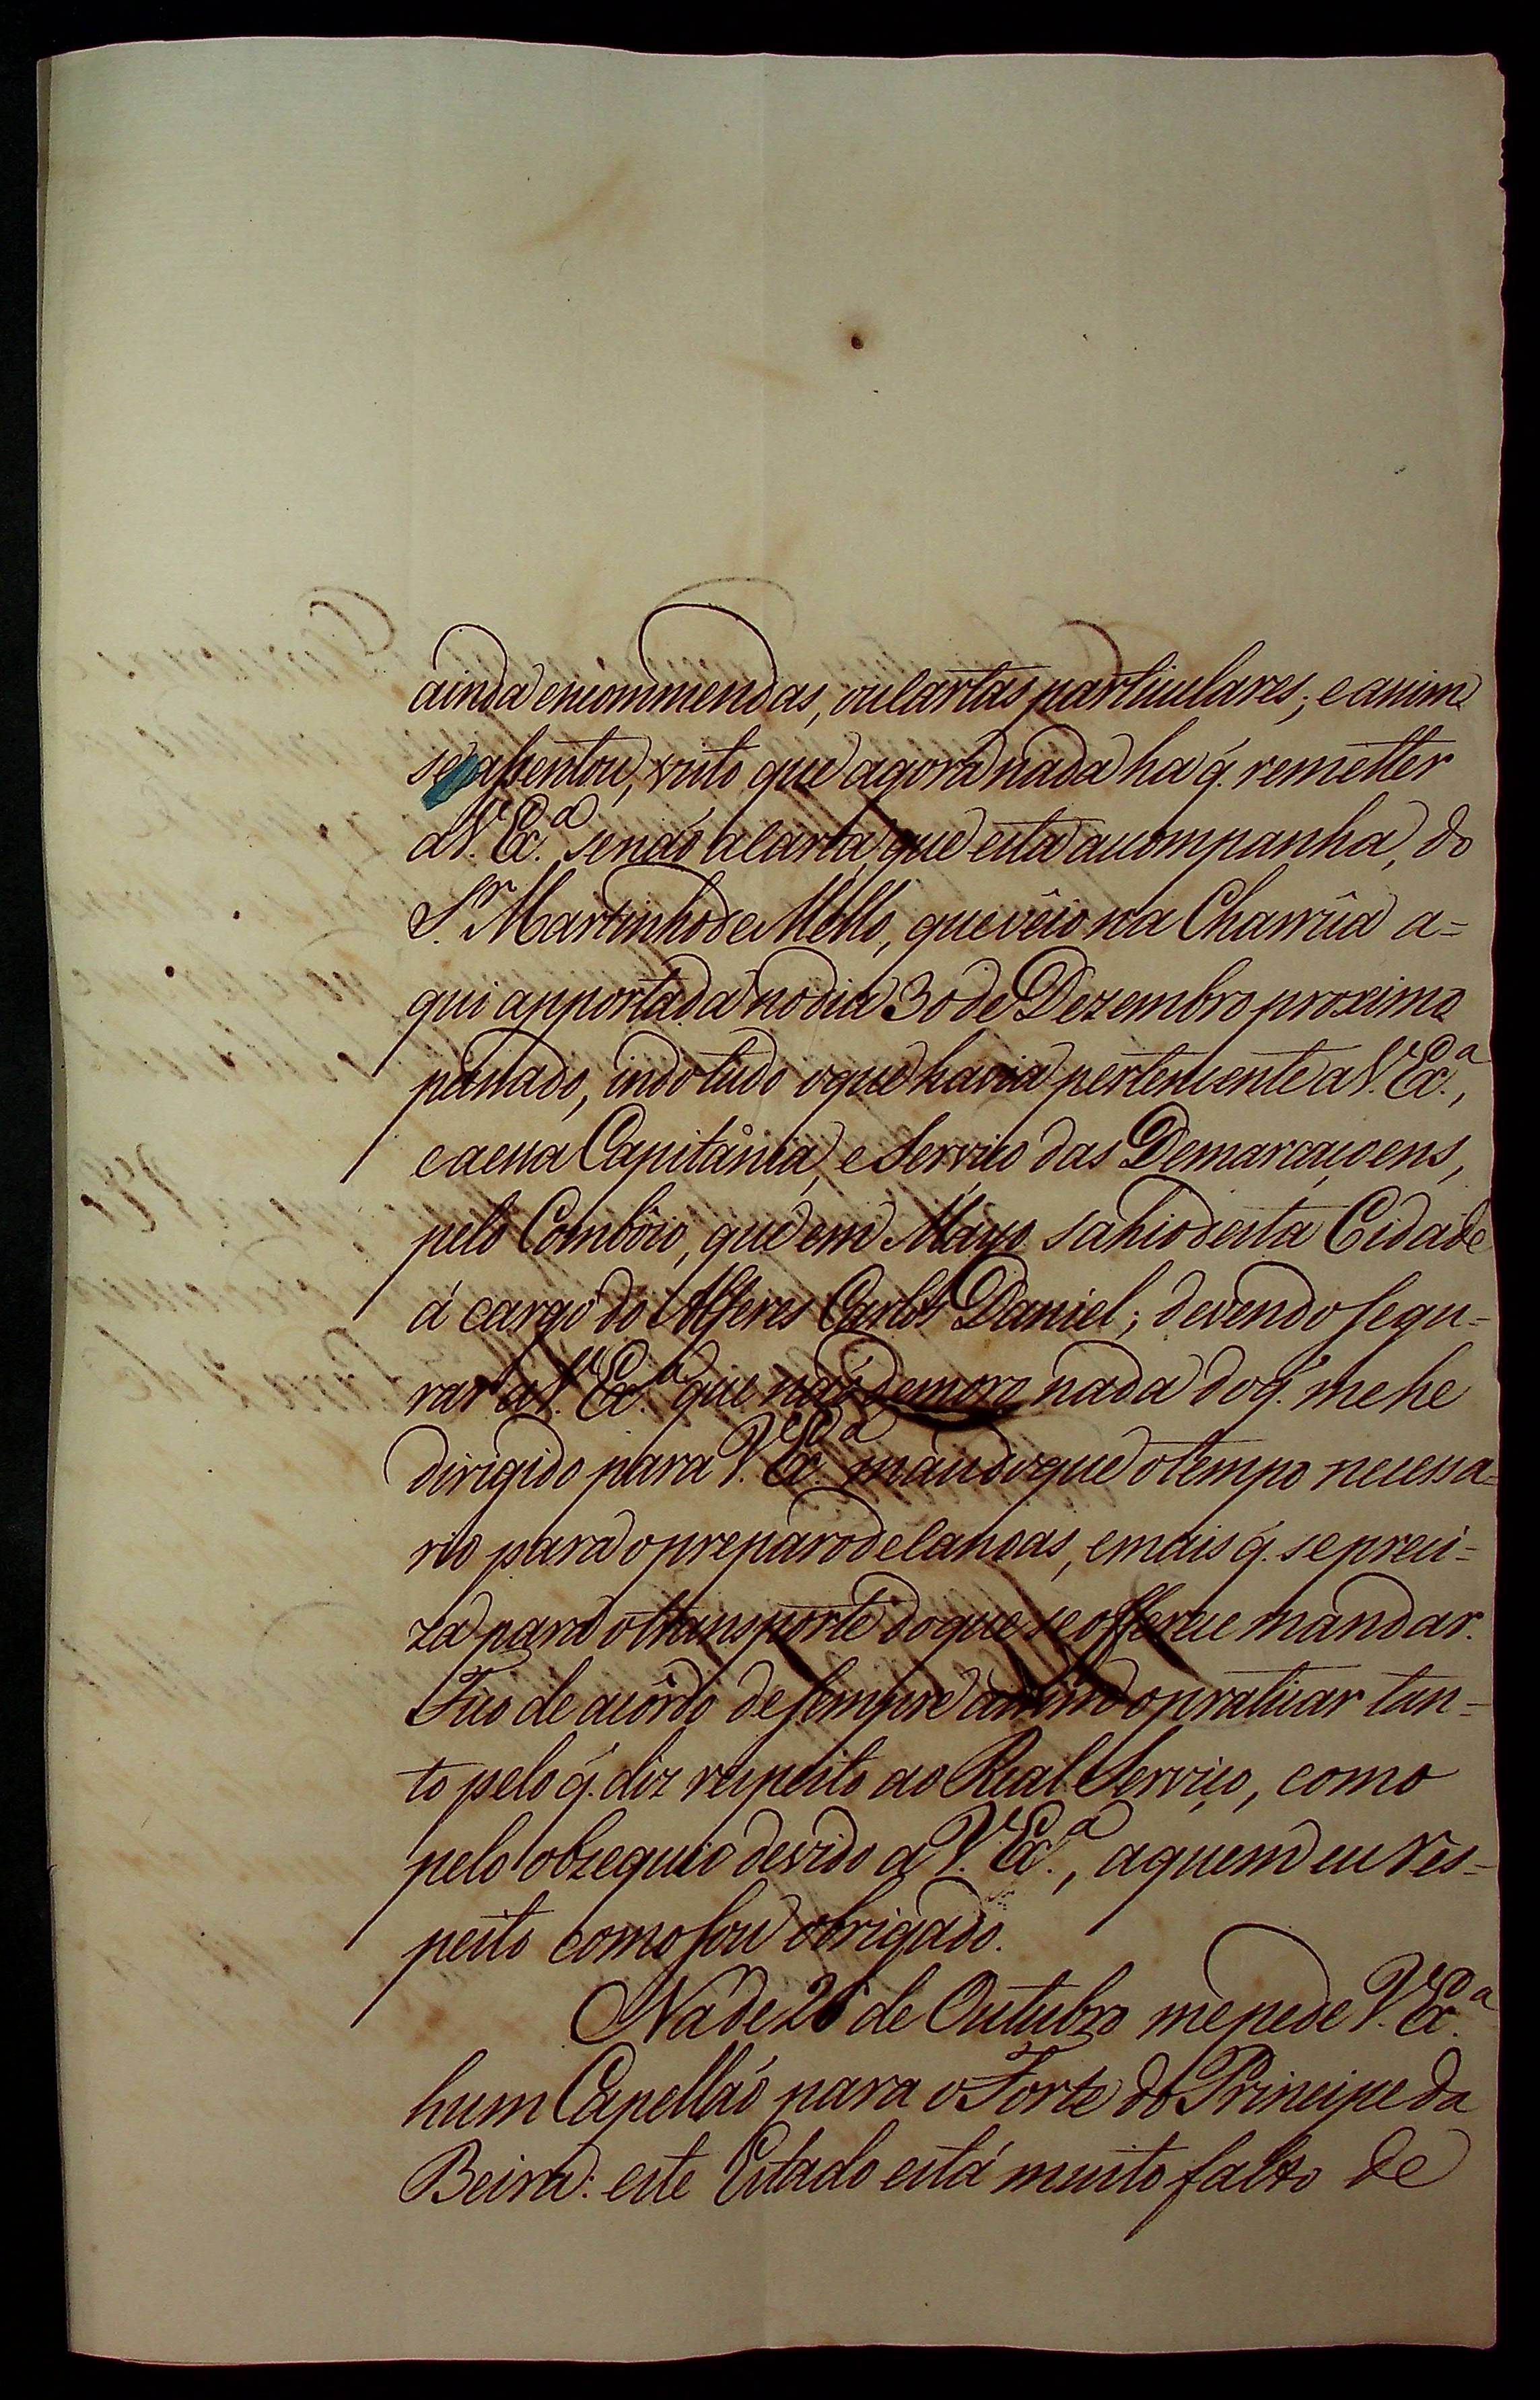 ainda encommendas, ou cartas particulares; e assim
se assentou, visto que agora nada ha q̃. remetter
a V. Ex.ª senaõ a carta, que esta acompanha, do
S.r Martinho de Mello, que vêio na Charrûa a=
qui apportada no dia 30 de Dezembro proximo
passado, indo tudo o que havia pertencente a V. Ex.ª,
e a essa Capitânia, e Serviço das Demarcaçoens,
pelo Combôio, que em Mayo sahio desta Cidade
á cargo do Alferes Carlos Daniel; devendo segu=
rar a V. Ex.ª que naõ demoro nada do q̃. me he
dirigido para V. Ex.ª mais do que o tempo necessa=
rio para o preparo de canoas, e mais q̃. se preci=
za para o transporte do que se offerece mandar.
Fico de acôrdo de sempre assim o praticar tan=
to pelo q̃. diz respeito ao Real Serviço, como
pelo obzequio devido a V. Ex.ª, a quem eu res=
peito como sou obrigado.
Na de 26 de Outubro me pede V. Ex.ª
hum Capellaõ para o Forte do Principe da
Beira: este Estado está muito falto de